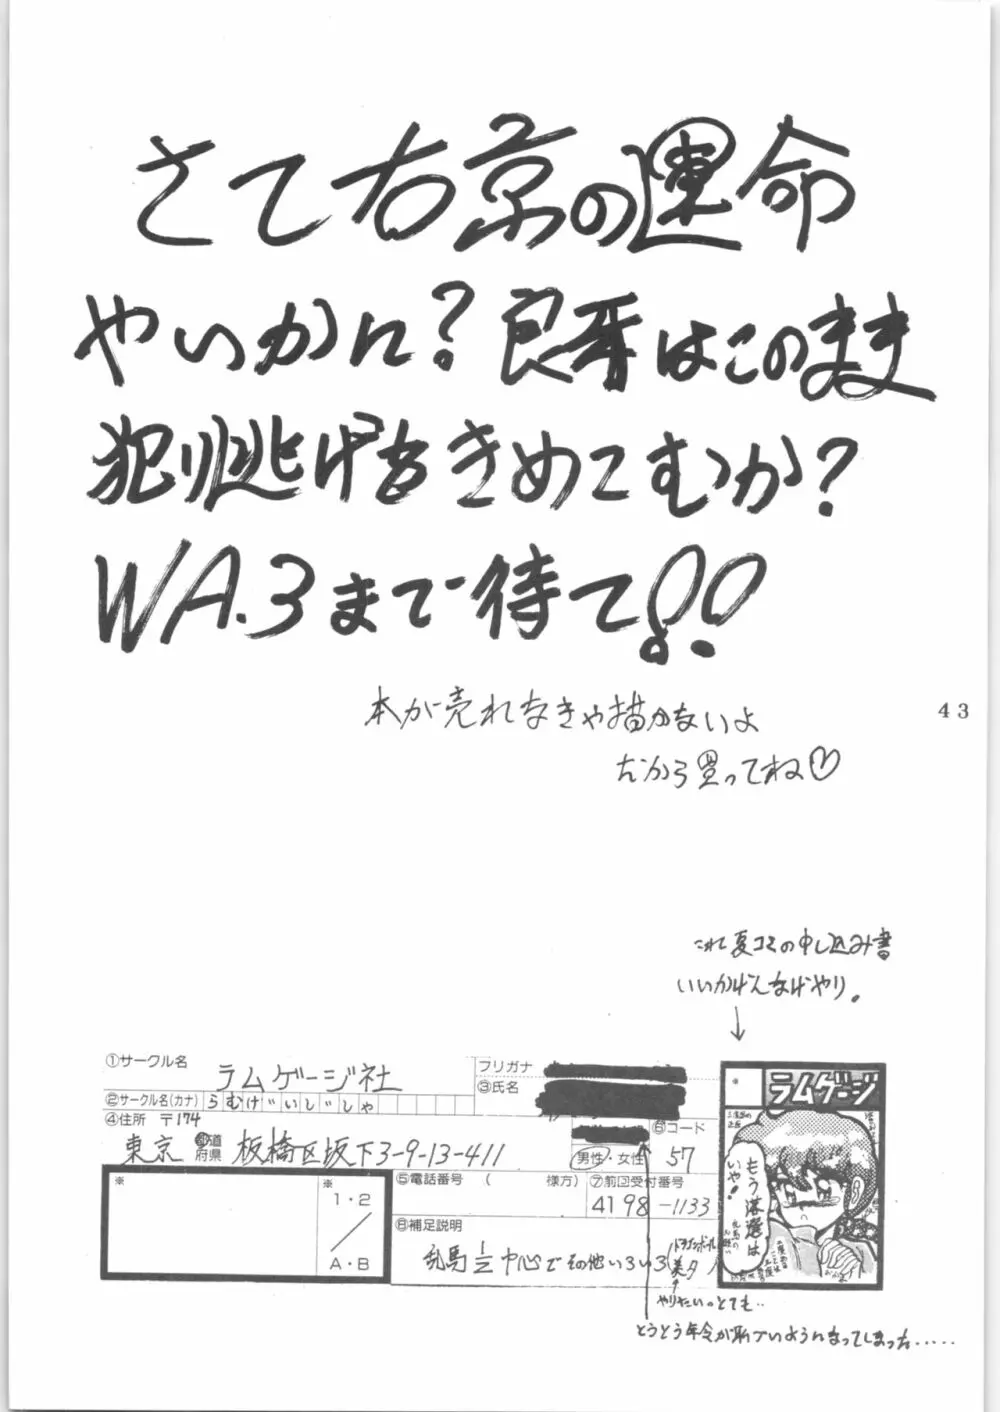 さて右京の運命
やいかに？良牙はこのまま
犯り逃げをきめこむか？
WA.3まで待て!!
本が売れなきゃ描かないよ
だから買ってね♡
43
これ夏コミの申し込み書
いいかげんなげやり。
①サークル名
ラムゲージ社
②サークル名(カナ)
らむげいじしゃ
フリガナ
③氏名
④住所 〒174
東京 都道府県 板橋区坂下3-9-13-411
男性・女性
⑥コード
57
⑤電話番号 ( 様方)
⑦前回受付番号
4198-1133
⑧補足説明
乱馬1/2中心でその他いろいろ(ドラゴンボール
美夕)
※
※
1・2
A・B
※
ラムゲージ
もう落選は
いや!
やりたいのとても..
とうとう年令が恥ずいようになってしまった.....